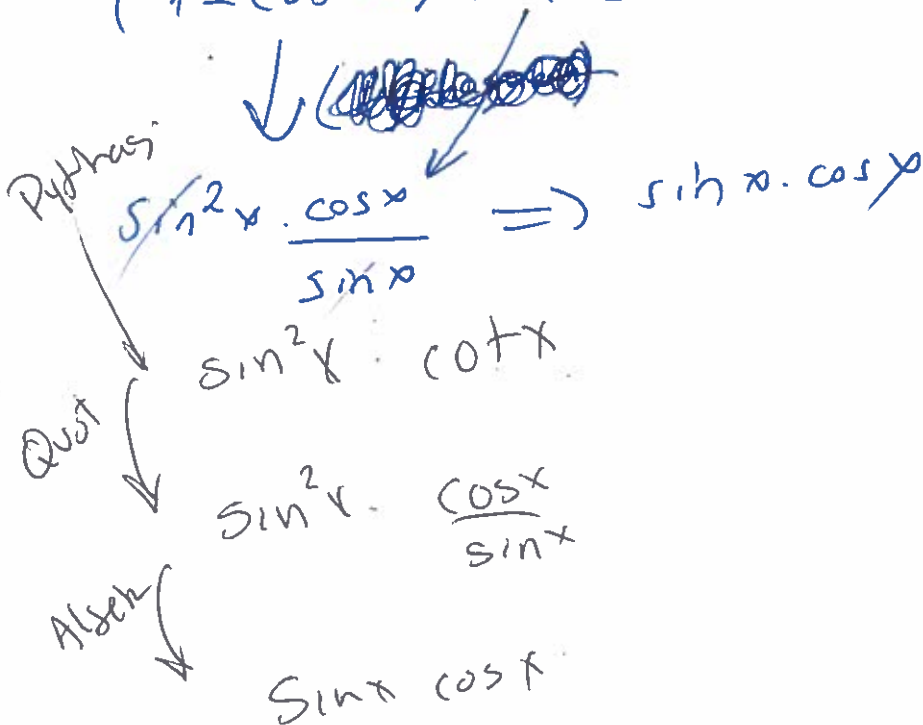 Pythag
sin²x · cosx / sinx => sin x · cos x
sin²x · cotx
Quot
sin²x · cosx / sinx
Algeb
Sinx cosx